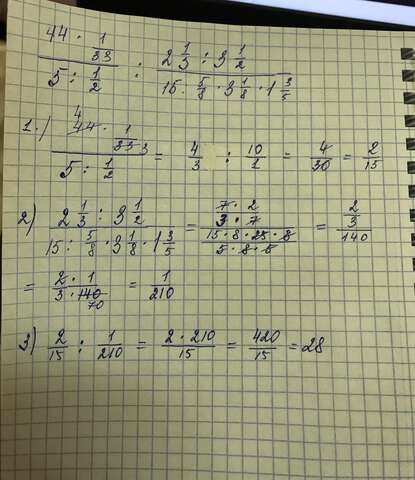 (44 · 1/33)/(5 : 1/2) : (2 1/3 : 3 1/2)/(15 : 5/8 · 3 1/8 · 1 3/5)
1.) (44 · 1/33)/(5 : 1/2) = 4/3 : 10/1 = 4/30 = 2/15
2) (2 1/3 : 3 1/2)/(15 : 5/8 · 3 1/8 · 1 3/5) = (7 · 2/3 · 7)/(15 · 8 · 25 · 8/5 · 8 · 5) = (2/3)/140
= 2 · 1/3 · 140 70 = 1/210
3) 2/15 : 1/210 = 2 · 210/15 = 420/15 = 28